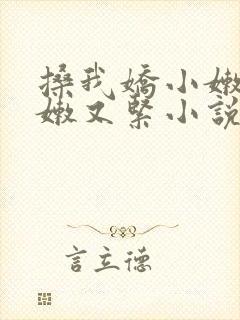 搡我嬌小嫩
嫩又緊小說
言立德